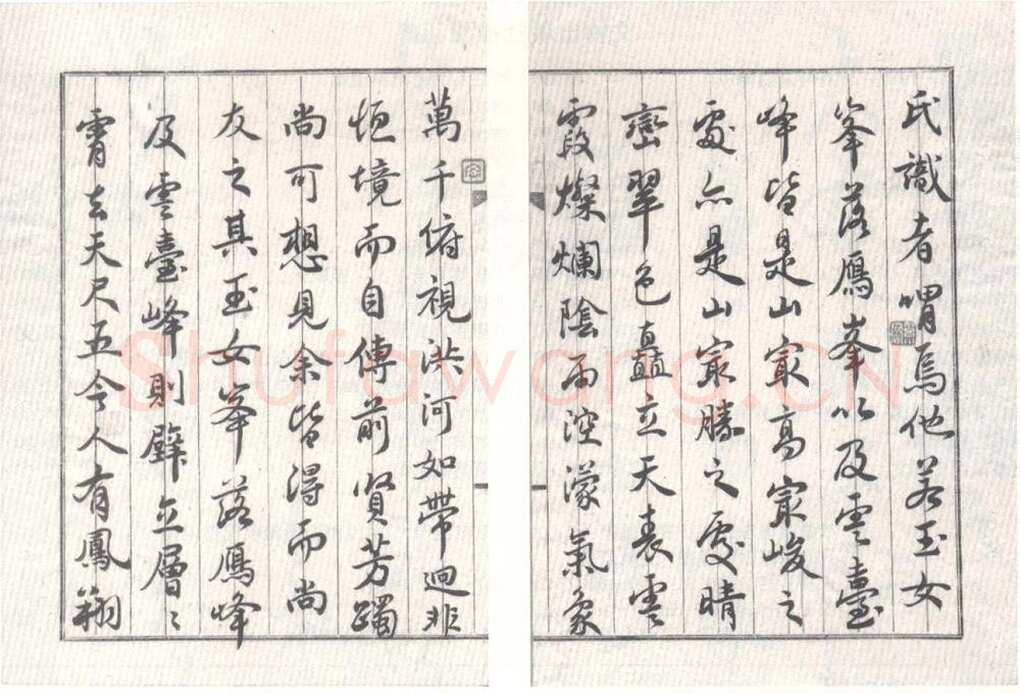 氏識者嘳焉他若玉女
峯落鴈峯以及雲臺
峰皆是山㝡高㝡峻之
處亦是山㝡勝之處晴
巒翠色矗立天表雲
霞燦爛陰雨涳濛氣象
萬千俯視洪河如帶迥非
恒境而自傳前賢芳躅
尚可想見余皆得而尚
友之其玉女峯落鴈峰
及雲臺峰則壁立層〻
霄去天尺五令人有鳳翔
Shufawang.CN